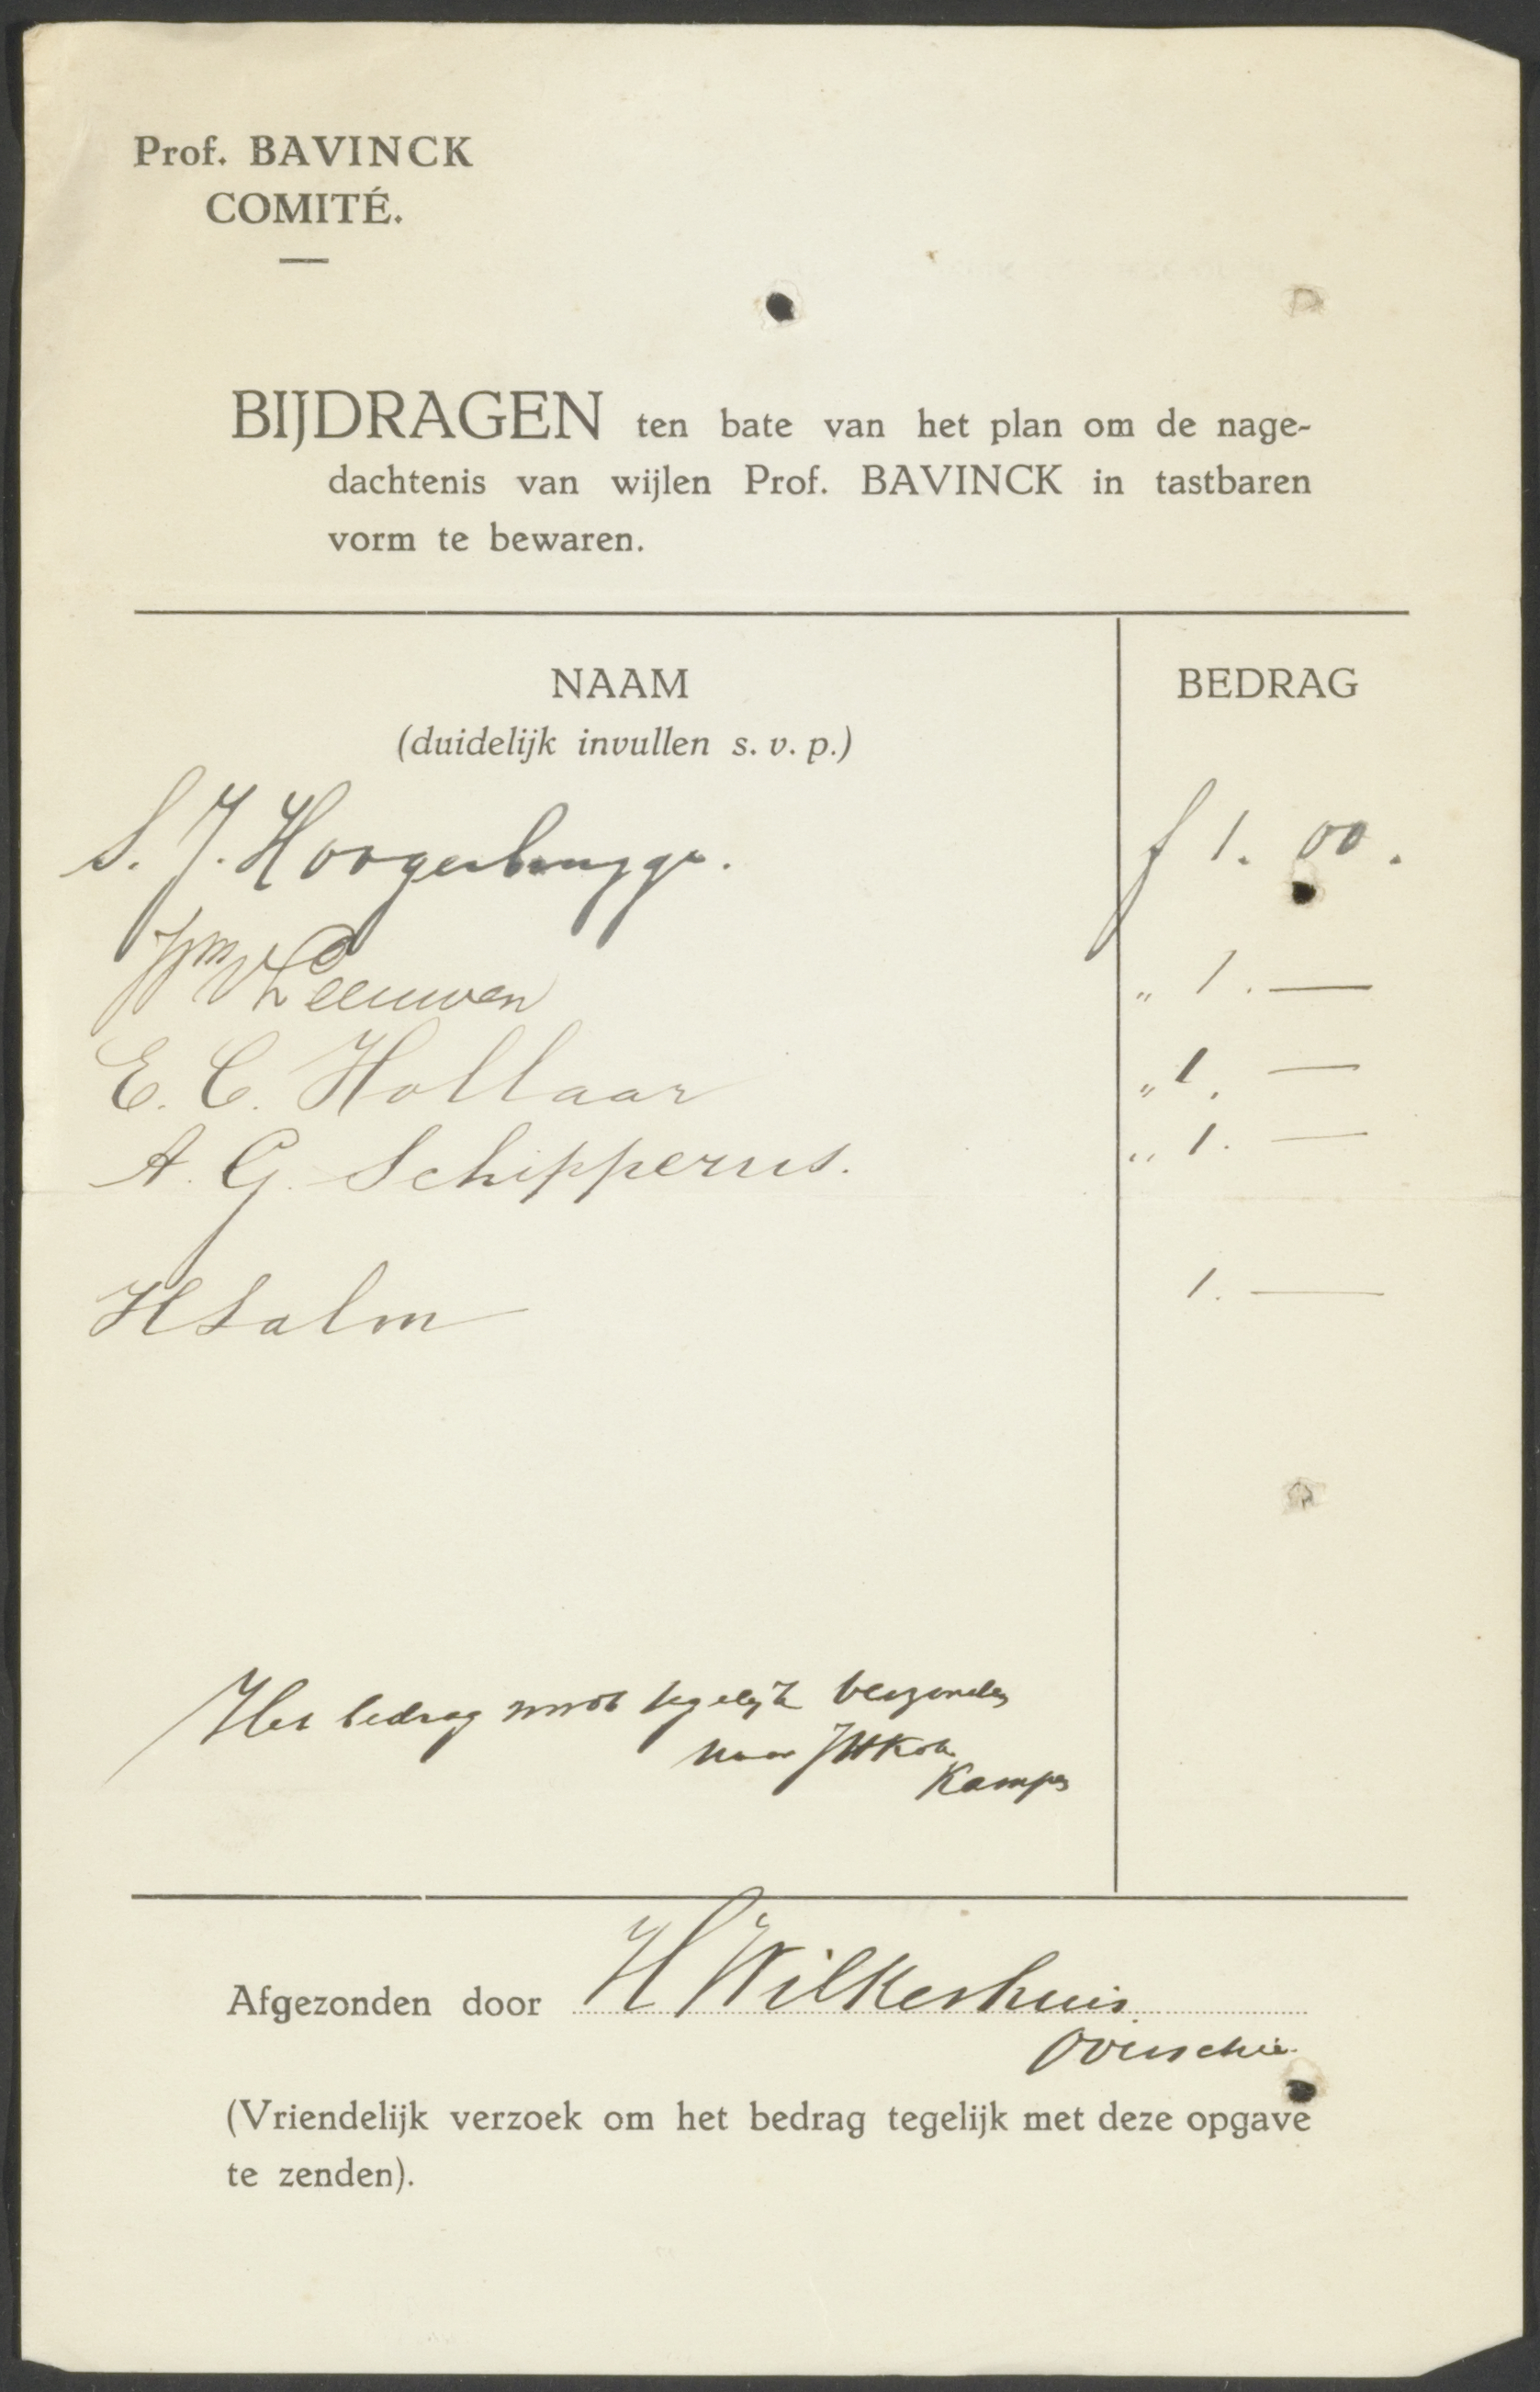 Prof. BAVINCK
COMITÉ.
BIJDRAGEN ten bate van het plan om de nage-
dachtenis van wijlen Prof. BAVINCK in tastbaren
vorm te bewaren.
NAAM BEDRAG
(duidelijk invullen s. v. p.)
S. J. Hoogerbrugge. f 1. 00.
Wm v Leeuwen „ 1. —
E. C. Hollaar „ 1. —
A. G. Schipperus. „ 1. —
H Salm 1. —
Het bedrag wordt tegelijk verzonden
naar J H Kok
Kampen
Afgezonden door H Wilkeshuis
Overschie.
(Vriendelijk verzoek om het bedrag tegelijk met deze opgave
te zenden).